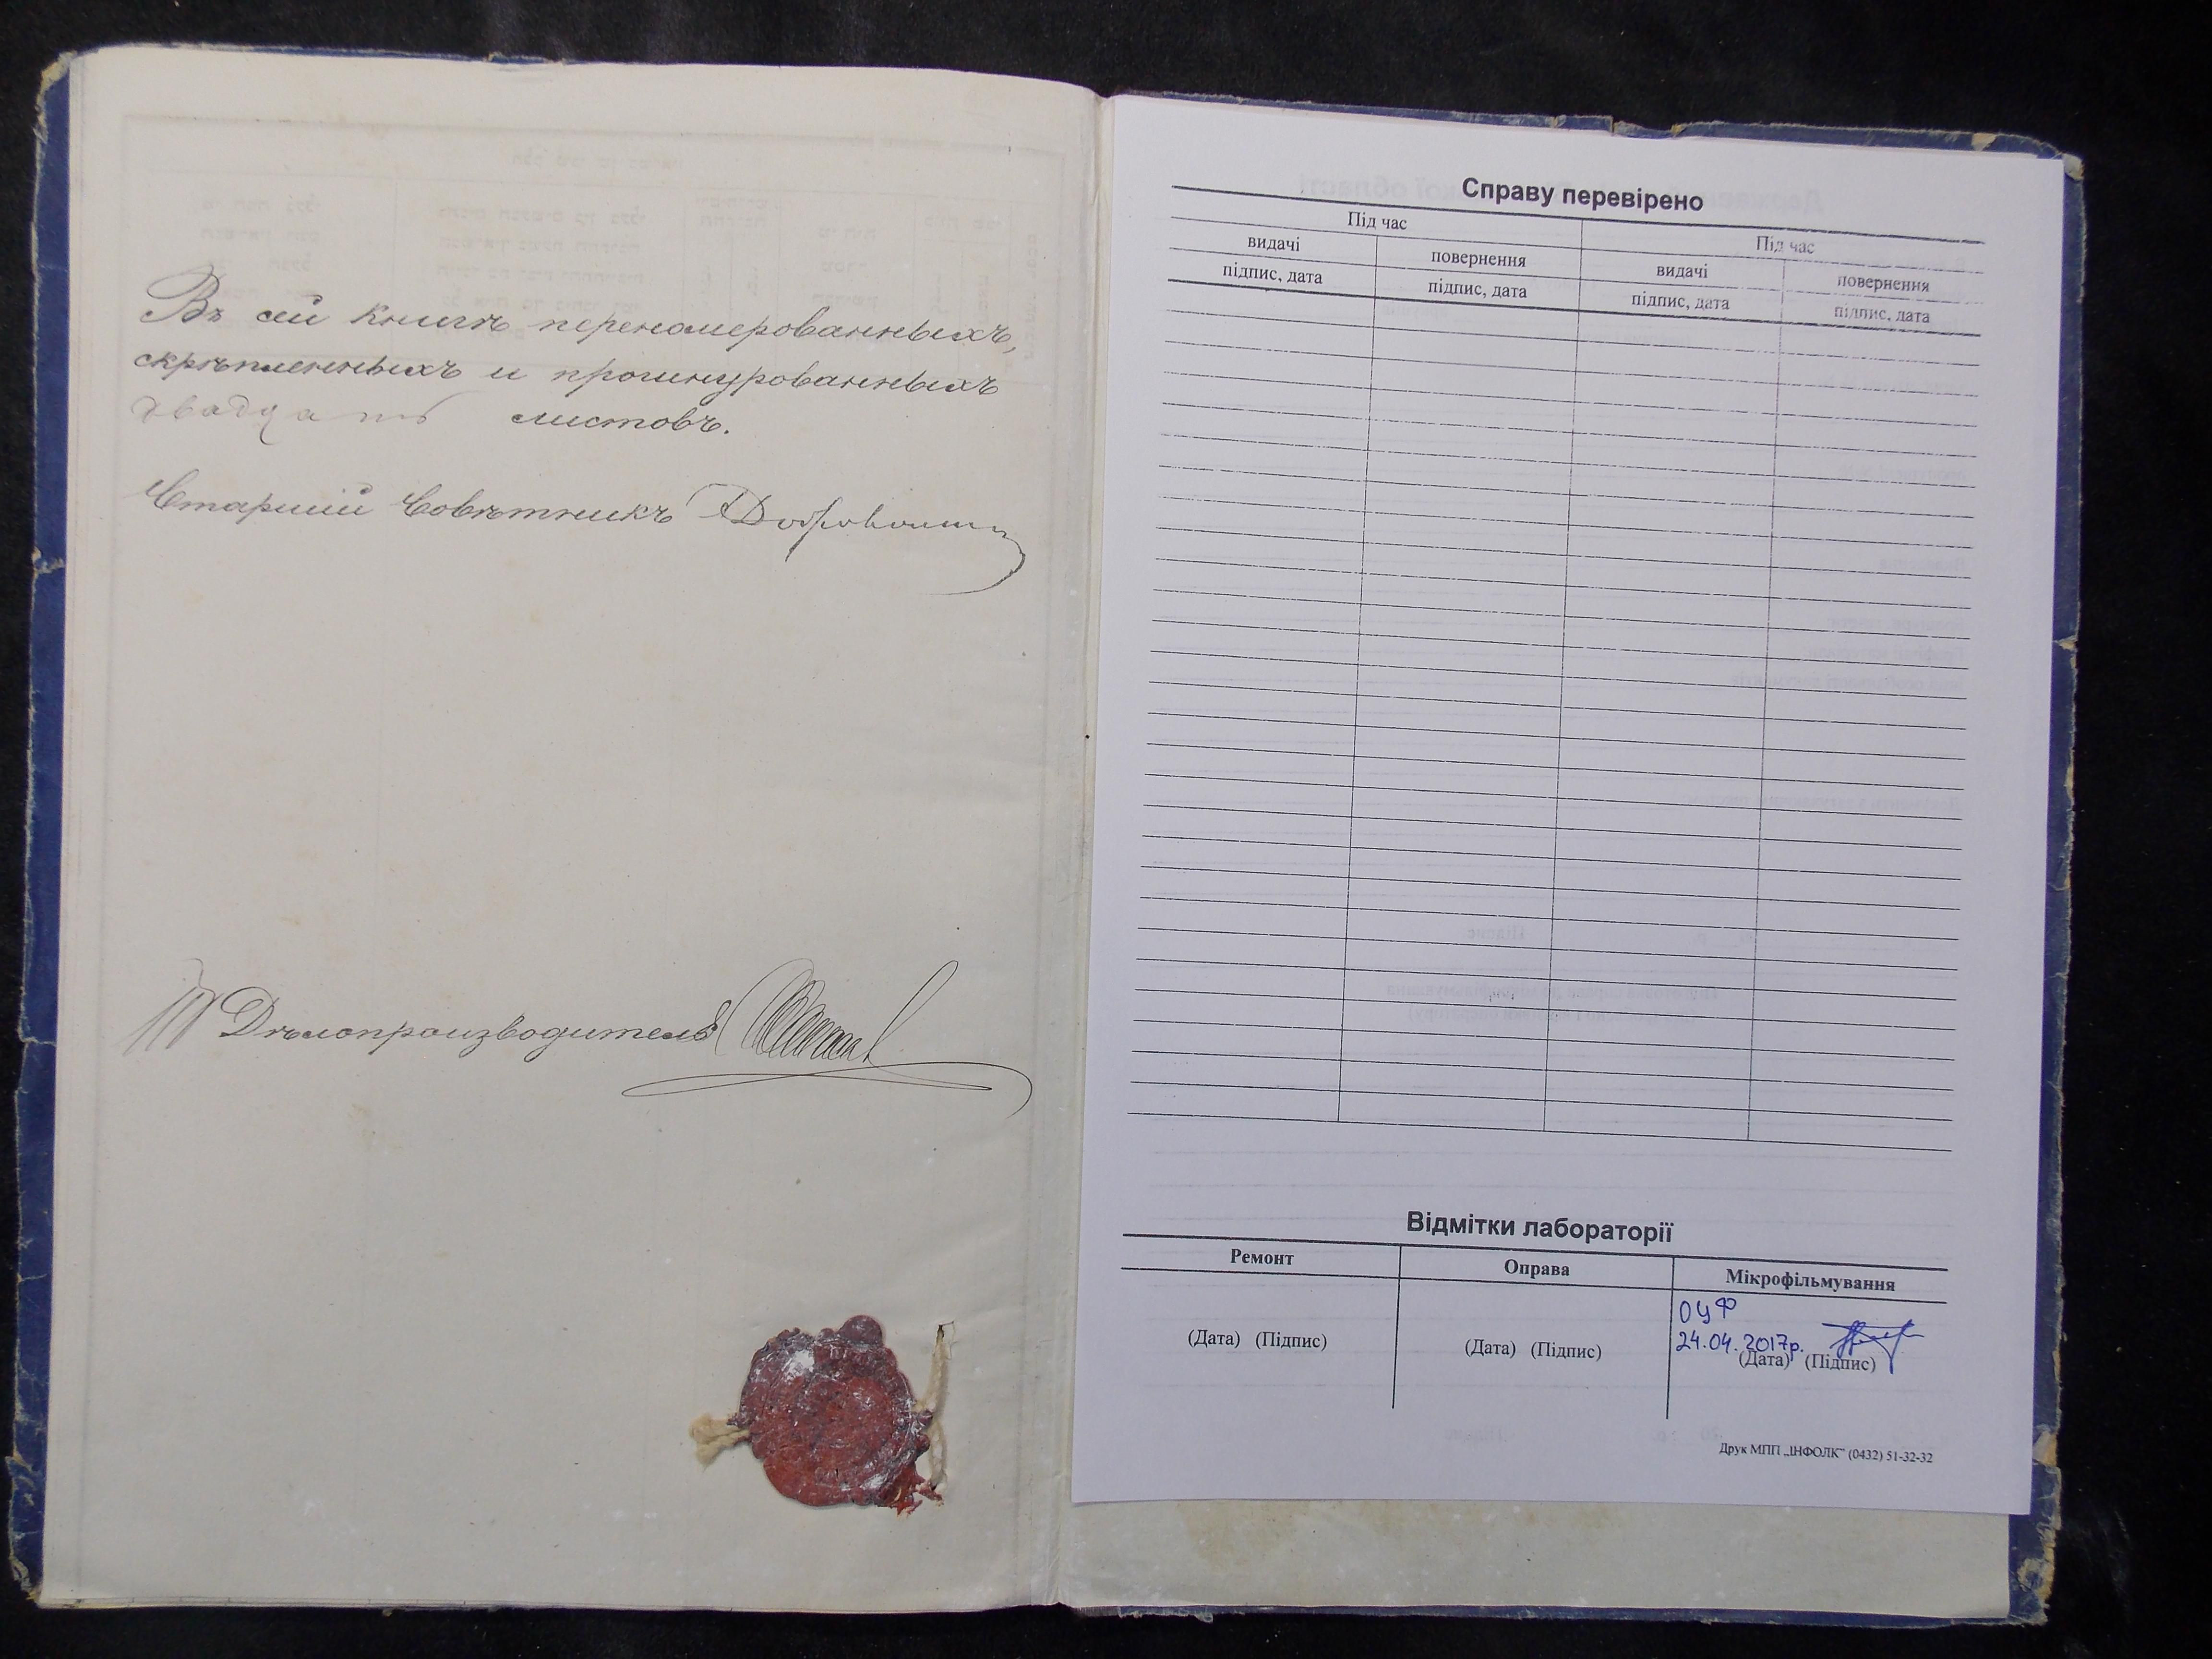 Въ сей книгѣ перенумерованныхъ,
скрѣпленныхъ и прошнурованныхъ
двадцать листовъ.
Старшій Совѣтникъ
Дѣлопроизводитель
Справу перевірено
Під час Під час
видачі повернення видачі повернення
підпис, дата підпис, дата підпис, дата підпис, дата
Відмітки лабораторії
Ремонт Оправа Мікрофільмування
ОЦФ
24.04.2017р.
(Дата) (Підпис) (Дата) (Підпис) (Дата) (Підпис)
Друк МПП „ІНФОЛК" (0432) 51-32-32